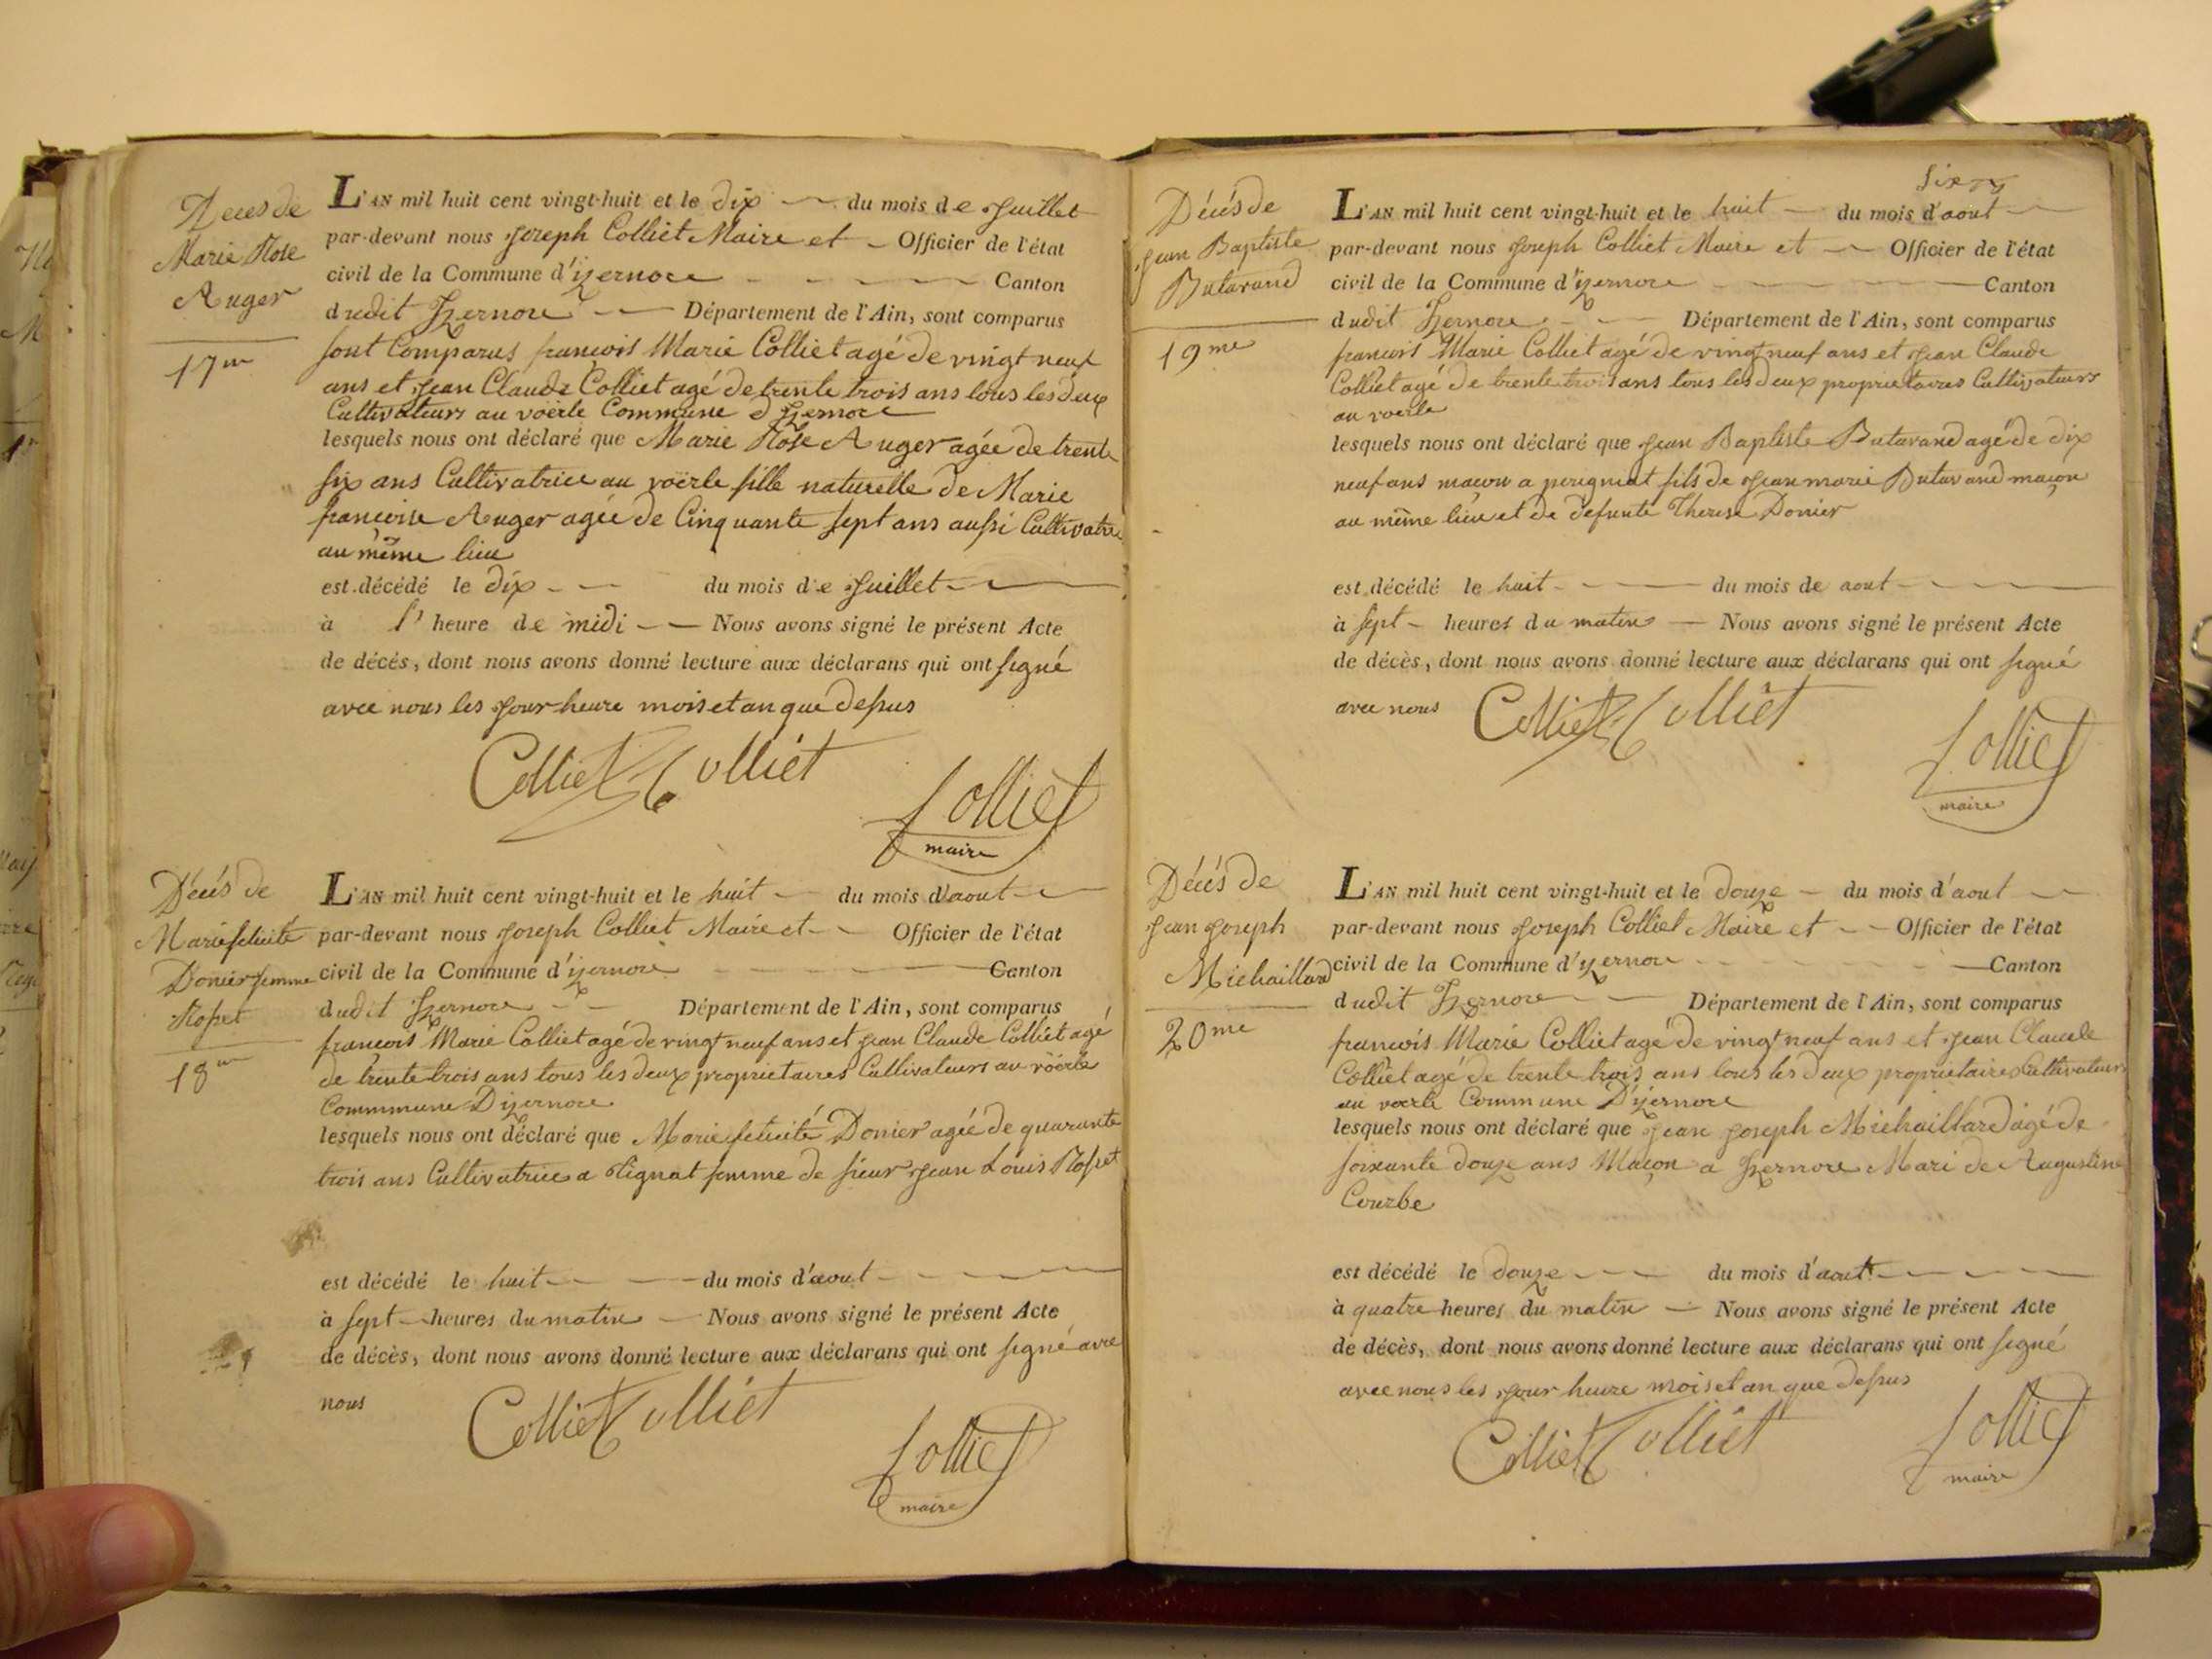 Decés de
Marie Rose
Auger
17me
L'AN mil huit cent vingt-huit et le dix du mois de juillet
par-devant nous Joseph Colliet Maire et Officier de l'état
civil de la Commune d'izernore Canton
dudit Izernore Département de l'Ain, sont comparus
sont Comparus francois Marie Colliet agé de vingt neuf
ans et Jean Claude Colliet agé de trente trois ans tous les deux
Cultivateurs au voërle Commune d'Izernore
lesquels nous ont déclaré que Marie Rose Auger agée de trente
six ans Cultivatrice au voërle fille naturelle de Marie
francoise Auger agée de Cinquante sept ans aussi Cultivatrice
au même lieu
est décédé le dix du mois de Juillet
à l' heure de midi Nous avons signé le présent Acte
de décés, dont nous avons donné lecture aux déclarans qui ont signé
avec nous les jour heure mois et an que dessus
Colliet Colliet
Colliet
maire
Décés de
Marie felicité
Donier femme
Rosset
18me
L'AN mil huit cent vingt-huit et le huit du mois d'aout
par-devant nous Joseph Colliet Maire et Officier de l'état
civil de la Commune d'izernore Canton
dudit Izernore Département de l'Ain, sont comparus
francois Marie Colliet agé de vingt neuf ans et Jean Claude Colliet agé
de trente trois ans tous les deux proprietaires Cultivateurs au voërle
Commmune D'izernore
lesquels nous ont déclaré que Marie felicité Donier agée de quarante
trois ans Cultivatrice a Tignat femme de sieur Jean Louis Rosset
est décédé le huit du mois d'aout
à sept heures du matin Nous avons signé le présent Acte
de décès, dont nous avons donné lecture aux déclarans qui ont signé avec
nous
Colliet Colliet
Colliet
maire
six
Décés de
Jean Baptiste
Butavand
19me
L'AN mil huit cent vingt-huit et le huit du mois d'aout
par-devant nous Joseph Colliet Maire et Officier de l'état
civil de la Commune d'izernore Canton
dudit Izernore Département de l'Ain, sont comparus
francois Marie Colliet agé de vingt neuf ans et Jean Claude
Colliet agé de trente trois ans tous les deux proprietaires Cultivateurs
au voerle
lesquels nous ont déclaré que Jean Baptiste Butavand agé de dix
neuf ans maçon a perignat fils de Jean marie Butavand maçon
au même lieu et de defunte Therese Donier
est décédé le huit du mois de aout
à sept heures du matin Nous avons signé le présent Acte
de décès, dont nous avons donné lecture aux déclarans qui ont signé
avec nous
Colliet Colliet
Colliet
maire
Décés de
Jean Joseph
Michaillard
20me
L'AN mil huit cent vingt-huit et le douze du mois d'aout
par-devant nous Joseph Colliet Maire et Officier de l'état
civil de la Commune d'izernore Canton
dudit Izernore Département de l'Ain, sont comparus
francois Marie Colliet agé de vingt neuf ans et Jean Claude
Colliet agé de trente trois ans tous les deux proprietaires Cultivateurs
au voerle Commune D'izernore
lesquels nous ont déclaré que Jean Joseph Michaillard agé de
soixante douze ans Maçon a Izernore Mari de Augustine
Courbe
est décédé le douze du mois d'aout
à quatre heures du matin Nous avons signé le présent Acte
de décès, dont nous avons donné lecture aux déclarans qui ont signé
avec nous les jour heure mois et an que dessus
Colliet Colliet
Colliet
maire